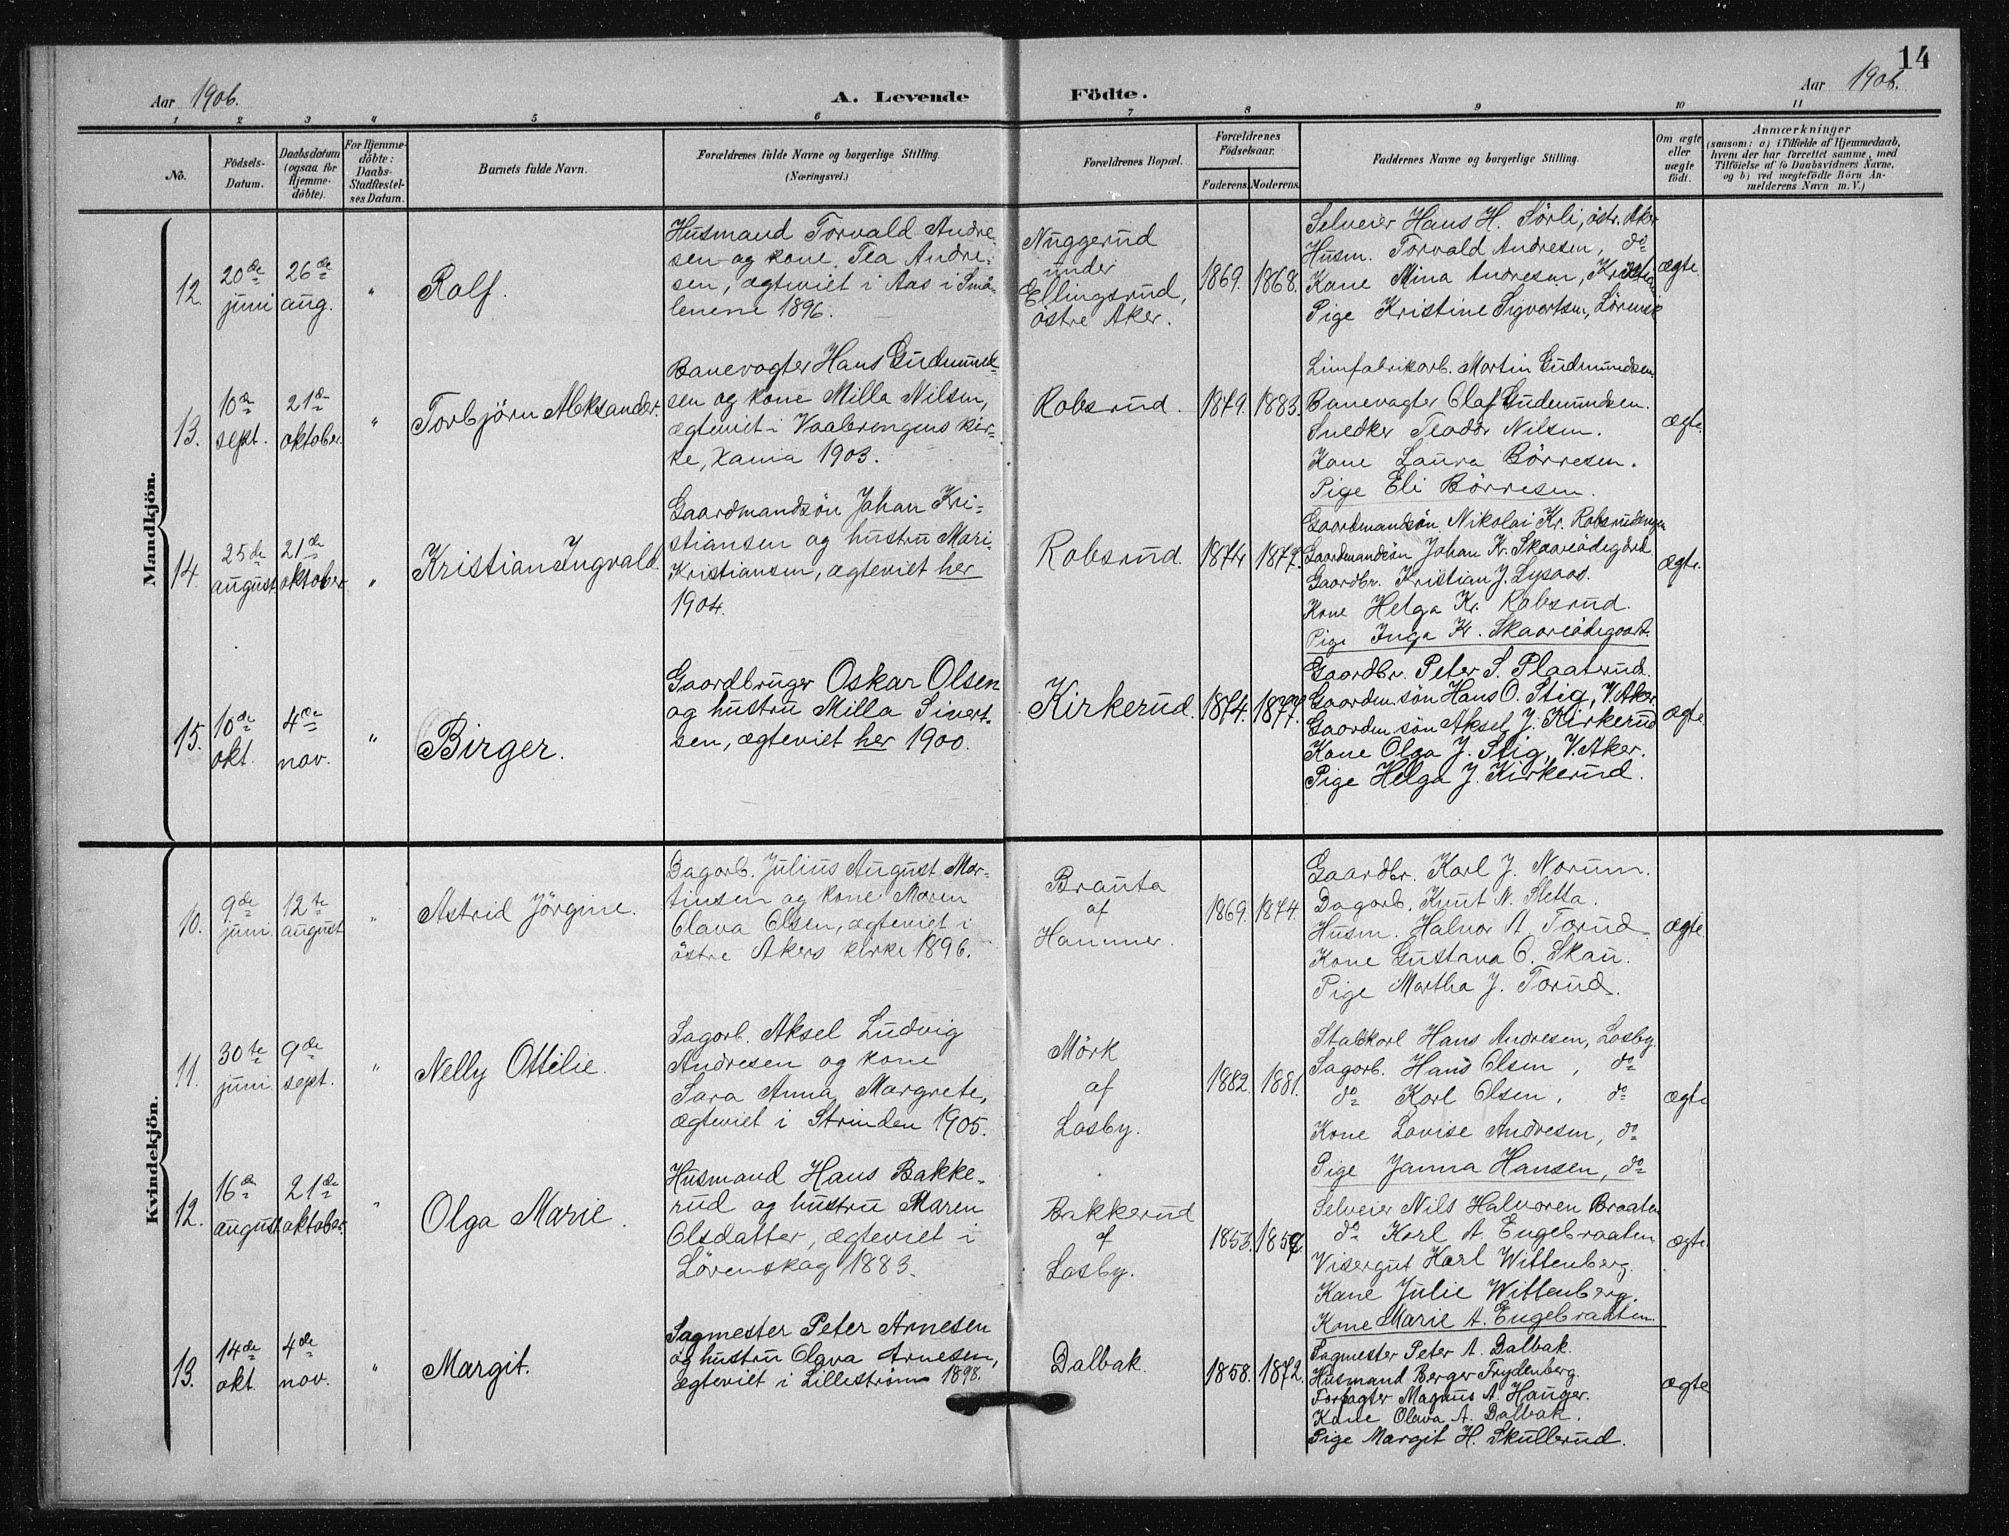 14
Aar 1906.
A. Levende Födte.
Aar 1906.
1 2 3 4 5 6 7 8 9 10 11
No.
Födsels-
Datum.
Daabsdatum
(ogsaa for
Hjemme-
döbte).
For Hjemme-
döbte:
Daabs-
Stadfæstel-
ses Datum.
Barnets fulde Navn.
Forældrenes fulde Navne og borgerlige Stilling.
(Næringsvei.)
Forældrenes Bopæl.
Forældrenes
Födselsaar.
Faderens. Moderens.
Faddernes Navne og borgerlige Stilling.
Om ægte
eller
uægte
födt.
Anmærkninger
(saasom: a) i Tilfælde af Hjemmedaab,
hvem der har forrettet samme, med
Tilföielse af to Daabsvidners Navne,
og b) ved uægtefödte Börn An-
melderens Navn m. V.)
Mandkjön.
12.
20de
juni
26de
aug.
"
Rolf.
Husmand Torvald Andre-
sen og kone Tea Andre-
sen, ægteviet i Aas i Små-
lenene 1896.
Nuggerud
under
Ellingsrud,
östre Aker.
1869. 1868.
Selveier Hans H. Sörli, östr. Aker
Husm. Torvald Andresen, do
Kone Mina Andresen,
Pige Kristine Sigvertsen,
ægte.
13.
10de
sept.
21de
oktober.
"
Torbjörn Aleksander.
Banevogter Hans Gudmund-
sen og kone Milla Nilsen,
ægteviet i Vaalerengens kir-
ke, Xania 1903.
Robsrud.
1879. 1883.
Limfabrikarb. Martin Gudmundsen
Banevogter Olaf Gudmundsen.
Snedker Teodor Nilsen.
Kone Laura Börresen.
Pige Eli Börresen.
ægte.
14
25de
august
21de
oktober
"
Kristian Ingvald
Gaardmandsön Johan Kri-
stiansen og hustru Mari-
Kristiansen, ægteviet her
1904.
Robsrud.
1874 1877.
Gaardmandsön Nikolai Kr. Robsrudengen
Gaardmandsön Johan Kr. Skaarerödegård.
Gaardbr. Kristian J. Lysaas.
Kone Helga Kr. Robsrud.
Pige Inga Kr. Skaarerödegaard.
ægte.
15.
10de
okt.
4de
nov.
"
Birger.
Gaardbruger Oskar Olsen
og hustru Milla Sivert-
sen, ægteviet her 1900.
Kirkerud.
1874. 1877.
Gaardbr. Peter S. Plaatrud.
Gaardm.sön Hans O. Stig, V. Aker.
Gaardm.sön Aksel J. Kirkerud
Kone Olga J. Stig, V. Aker.
Pige Helga J. Kirkerud.
ægte
Kvindekjön.
10.
9de
juni
12te
august
"
Astrid Jörgine.
Dagarb. Julius August Mar-
tinsen og kone Maren
Olava Olsen, ægteviet i
östre Akers kirke 1896.
Brauta
af
Hammer.
1869. 1874.
Gaardbr. Karl J. Norum.
Dagarb. Knut N. Sletta.
Husm. Halvor A. Torud.
Kone Gustava O. Skau.
Pige Martha J. Torud.
ægte
11.
30te
juni
9de
sept.
"
Nelly Ottilie.
Sagarb. Aksel Ludvig
Andresen og kone
Sara Anna Margrete,
ægteviet i Strinden 1905.
Mörk
af
Losby.
1882. 1881.
Staldkarl Hans Andresen, Losby.
Sagarb. Hans Olsen, do
do Karl Olsen, do
Kone Lovise Andresen, do
Pige Janna Hansen, do
ægte
12.
16de
august
21de
oktober.
"
Olga Marie.
Husmand Hans Bakke-
rud og hustru Maren
Olsdatter, ægteviet i
Lörenskog 1883.
Bakkerud
af
Losby.
1853.
Selveier Nils Halvorsen Braaten
do Karl A. Engebraaten
Visergut Karl Wittenberg.
Kone Julie Wittenberg.
Kone Marie A. Engebraaten.
ægte.
13.
14de
okt.
4de
nov.
"
Margit.
Sagmester Peter Arnesen
og hustru Olava Arnesen,
ægteviet i Lilleström 1898.
Dalbak.
1858. 1872.
Sagmester Peter A. Dalbak.
Husmand Berger Frydenberg.
Forpagter Magnus A. Hauger.
Kone Olava A. Dalbak.
Pige Margit H. Skullerud.
ægte